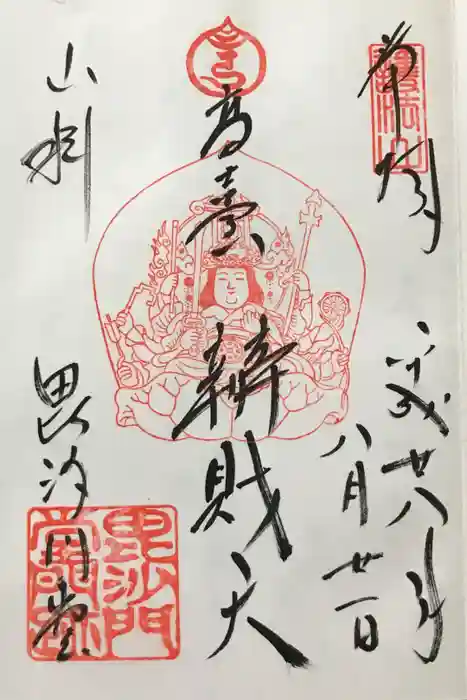 奉拝
平成廿八年
八月廿一日
高臺
辨財天
山科
毘沙門堂
毘沙門
堂門跡
護法山